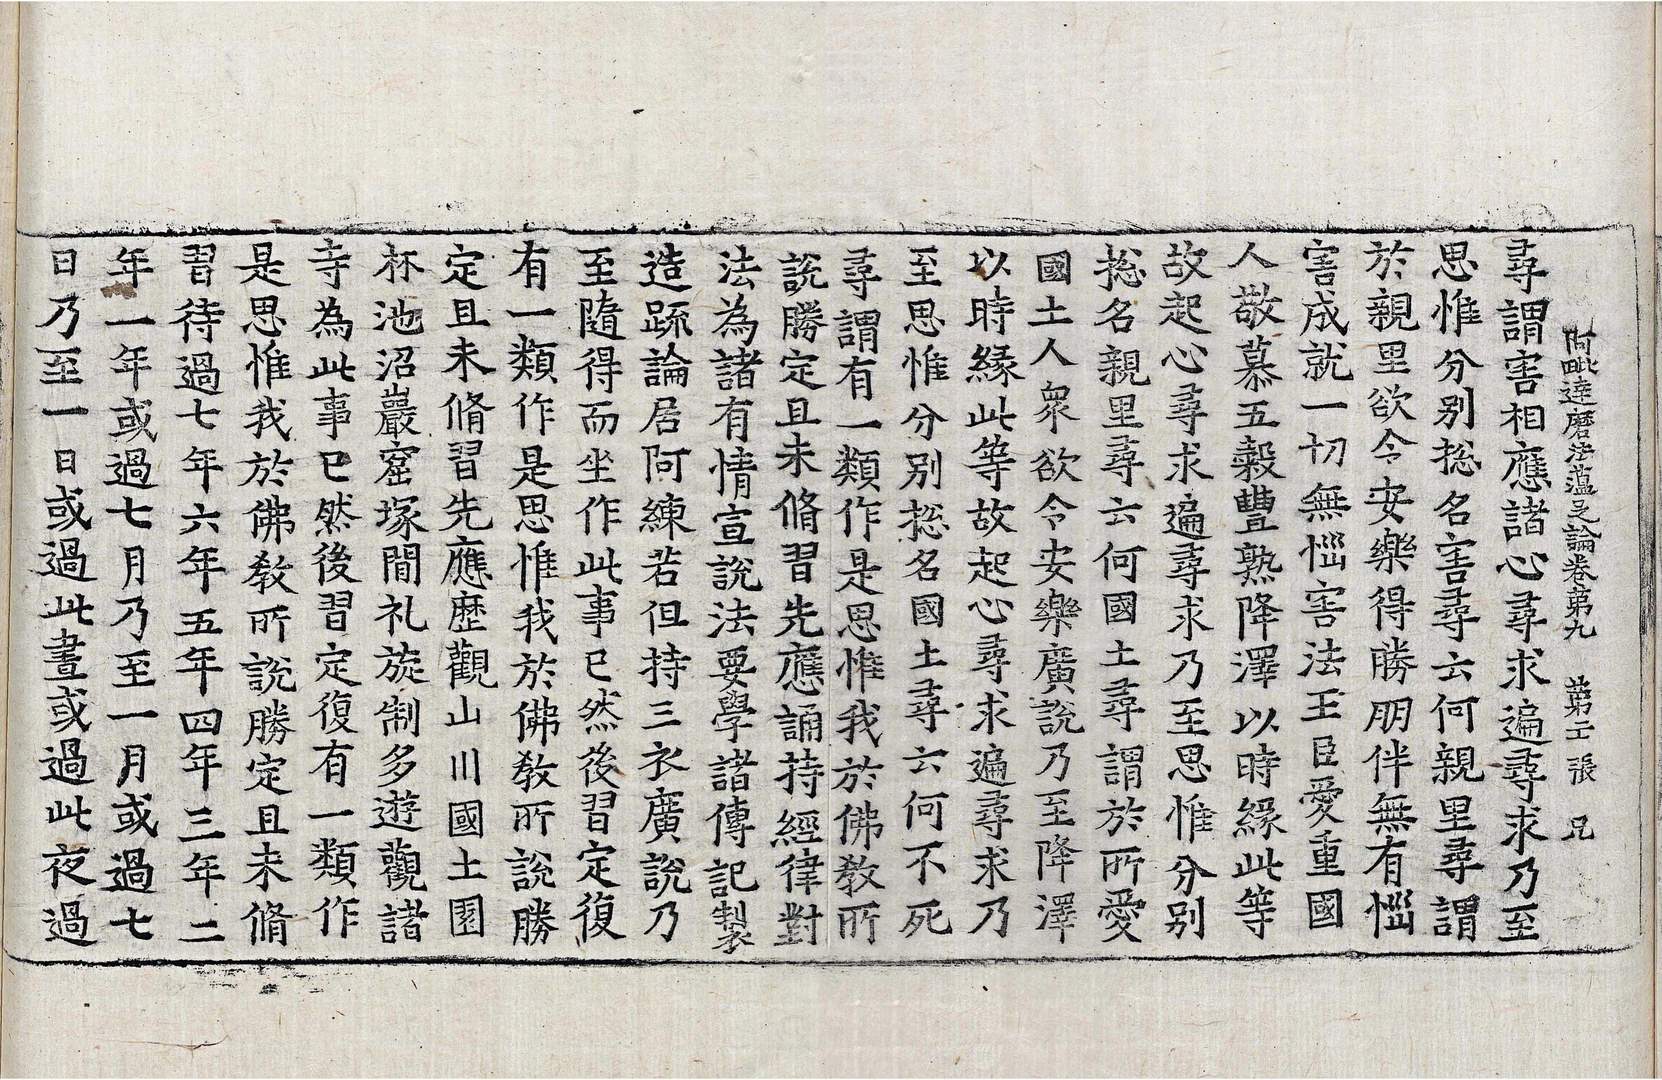 阿毗達磨法蘊足論卷第九　第二張　兄
尋謂害相應諸心尋求遍尋求乃至
思惟分別揔名害尋云何親里尋謂
於親里欲令安樂得勝朋伴無有惱
害成就一切無惱害法王臣愛重國
人敬慕五穀豐熟降澤以時緣此等
故起心尋求遍尋求乃至思惟分別
揔名親里尋云何國土尋謂於所愛
國土人衆欲令安樂廣說乃至降澤
以時緣此等故起心尋求遍尋求乃
至思惟分別揔名國土尋云何不死
尋謂有一類作是思惟我於佛教所
說勝定且未脩習先應誦持經律對
法為諸有情宣說法要學諸傳記製
造䟽論居阿練若但持三衣廣說乃
至隨得而坐作此事已然後習定復
有一類作是思惟我於佛教所說勝
定且未脩習先應歷觀山川國土園
林池沼巖窟塚間礼旋制多遊觀諸
寺為此事已然後習定復有一類作
是思惟我於佛教所說勝定且未脩
習待過七年六年五年四年三年二
年一年或過七月乃至一月或過七
日乃至一日或過此晝或過此夜過